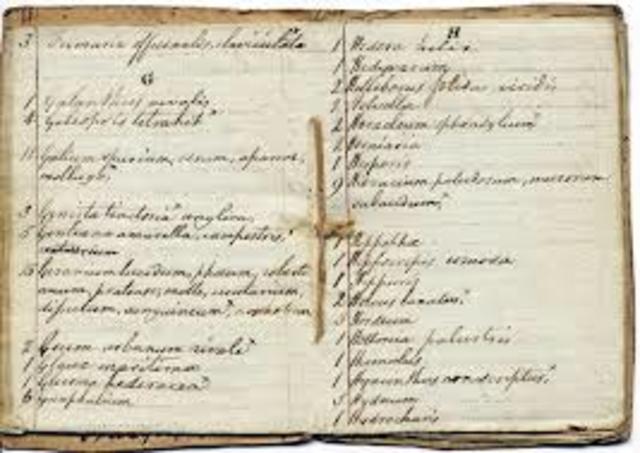 3 Fumaria officinalis, claviculata
G
1 Galanthus nivalis
4 Galeopsis tetrahit
11 Galium spurium, verum, aparine,
mollugo
3 Genista tinctoria anglica
5 Gentiana amarella, campestris
15 Geranium lucidum, phaeum, roberti
anum, pratense, molle,
sanguineum
2 Geum urbanum rivale
1 Glaux maritima
1 Glecoma hederacea
6 Gnaphalium
H
1 Hedera helix
1 Hedysarum
2 Helleborus foetidus viridis
2 Heracleum sphondylium
1 Herniaria
1 Hesperis
9 Hieracium paludosum, murorum
sabaudum
1 Hippophae
1 Hippocrepis comosa
1 Hippuris
2 Holcus lanatus
3 Hordeum
1 Hottonia palustris
1 Humulus
1 Hyacinthus nonscriptus
1 Hydrocharis